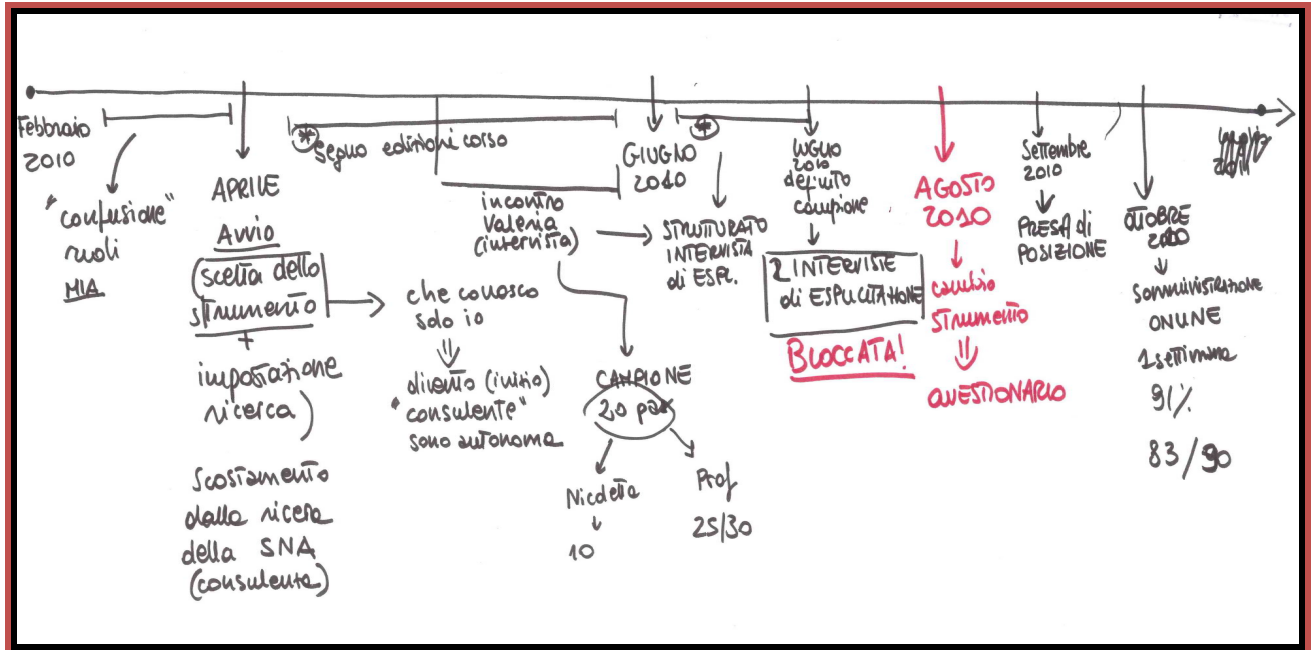 Febbraio
2010
"confusione"
ruoli
MIA
APRILE
Avvio
(scelta dello
strumento
+
impostazione
ricerca)
Scostamento
dalla ricerca
della SNA
(consulente)
* seguo edizioni corso
che conosco
solo io
⇓
divento (inizio)
"consulente"
sono autonoma
incontro
Valeria
(intervista)
CAMPIONE
20 pax
Nicoletta
↓
10
Prof
25/30
GIUGNO
2010
*
STRUTTURATO
INTERVISTA
di ESPL.
LUGLIO
2010
definito
campione
↓
2 INTERVISTE
di ESPLICITAZIONE
BLOCCATA!
AGOSTO
2010
↓
cambio
STRUMENTO
⇓
QUESTIONARIO
Settembre
2010
↓
PRESA di
POSIZIONE
OTTOBRE
2010
↓
SOMMINISTRAZIONE
ONLINE
1 settimana
91%
83/90